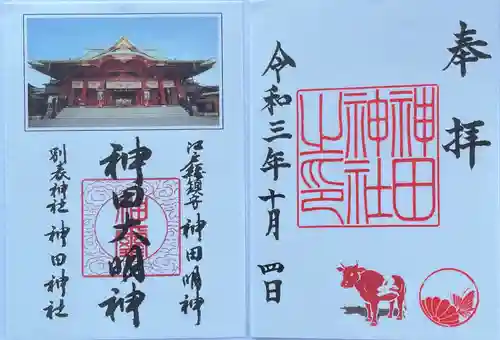 奉拝
神田神社之印
令和三年十月四日
江戸総鎮守 神田明神
神田大明神
別表神社 神田神社